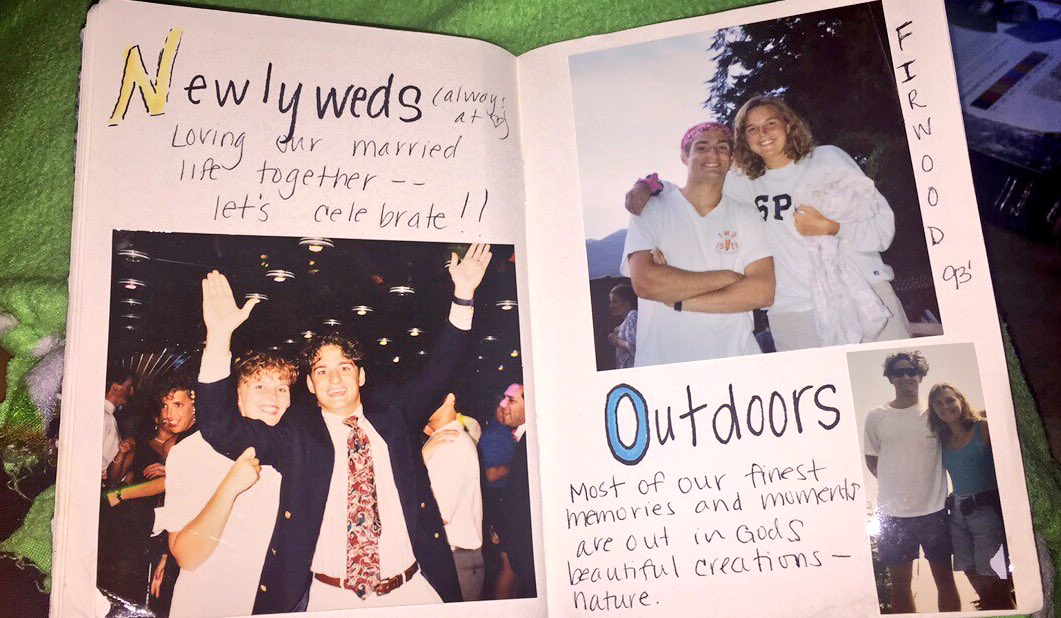 Newlyweds (always
at ♡)
Loving our married
life together --
let's celebrate!!
FIRWOOD
93'
SP
Outdoors
Most of our finest
memories and moments
are out in Gods
beautiful creations—
nature.